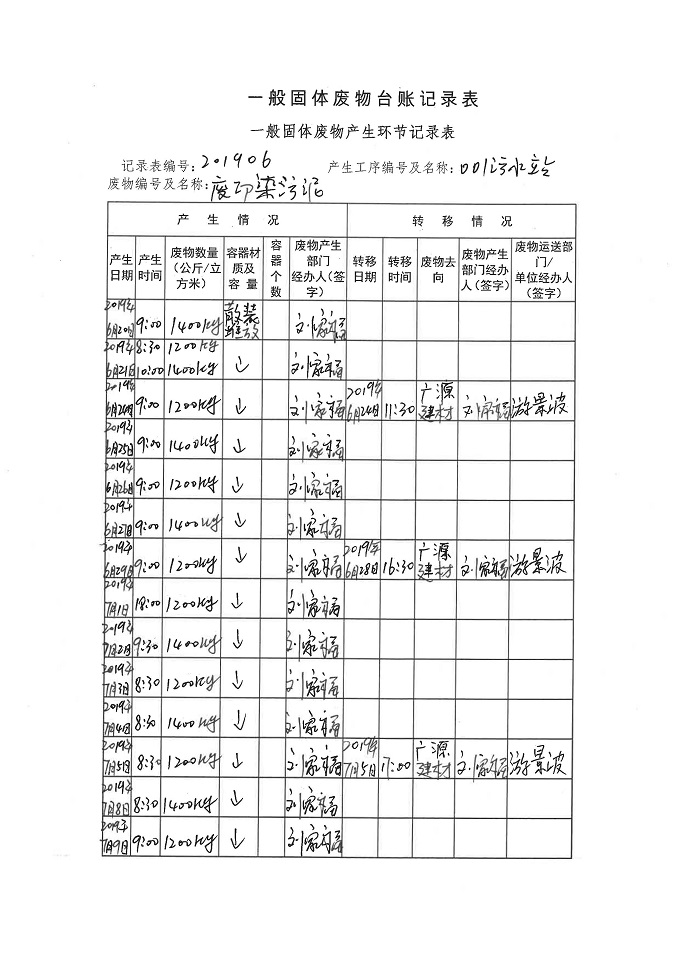 一般固体废物台账记录表
一般固体废物产生环节记录表
记录表编号:201906 产生工序编号及名称:001污水站
废物编号及名称:废印染污泥
产生情况 转移情况
产生日期 产生时间 废物数量(公斤/立方米) 容器材质及容量 容器个数 废物产生部门经办人(签字) 转移日期 转移时间 废物去向 废物产生部门经办人(签字) 废物运送部门/单位经办人(签字)
2019年6月20日 9:00 1400kg 散装堆放 刘家福
2019年6月21日 8:30 1200kg 10:00 1400kg ↓ 刘家福
2019年6月24日 9:00 1200kg ↓ 刘家福 2019年6月24日 11:30 广源建材 刘家福 游景波
2019年6月25日 9:00 1400kg ↓ 刘家福
2019年6月26日 9:00 1200kg ↓ 刘家福
2019年6月27日 9:00 1400kg ↓ 刘家福
2019年6月29日 9:00 1200kg ↓ 刘家福 2019年6月28日 16:30 广源建材 刘家福 游景波
2019年7月1日 18:00 1200kg ↓ 刘家福
2019年7月2日 9:30 1400kg ↓ 刘家福
2019年7月3日 8:30 1200kg ↓ 刘家福
2019年7月4日 8:30 1400kg ↓ 刘家福
2019年7月5日 8:30 1200kg ↓ 刘家福 2019年7月5日 17:00 广源建材 刘家福 游景波
2019年7月8日 8:30 1400kg ↓ 刘家福
2019年7月9日 9:00 1200kg ↓ 刘家福